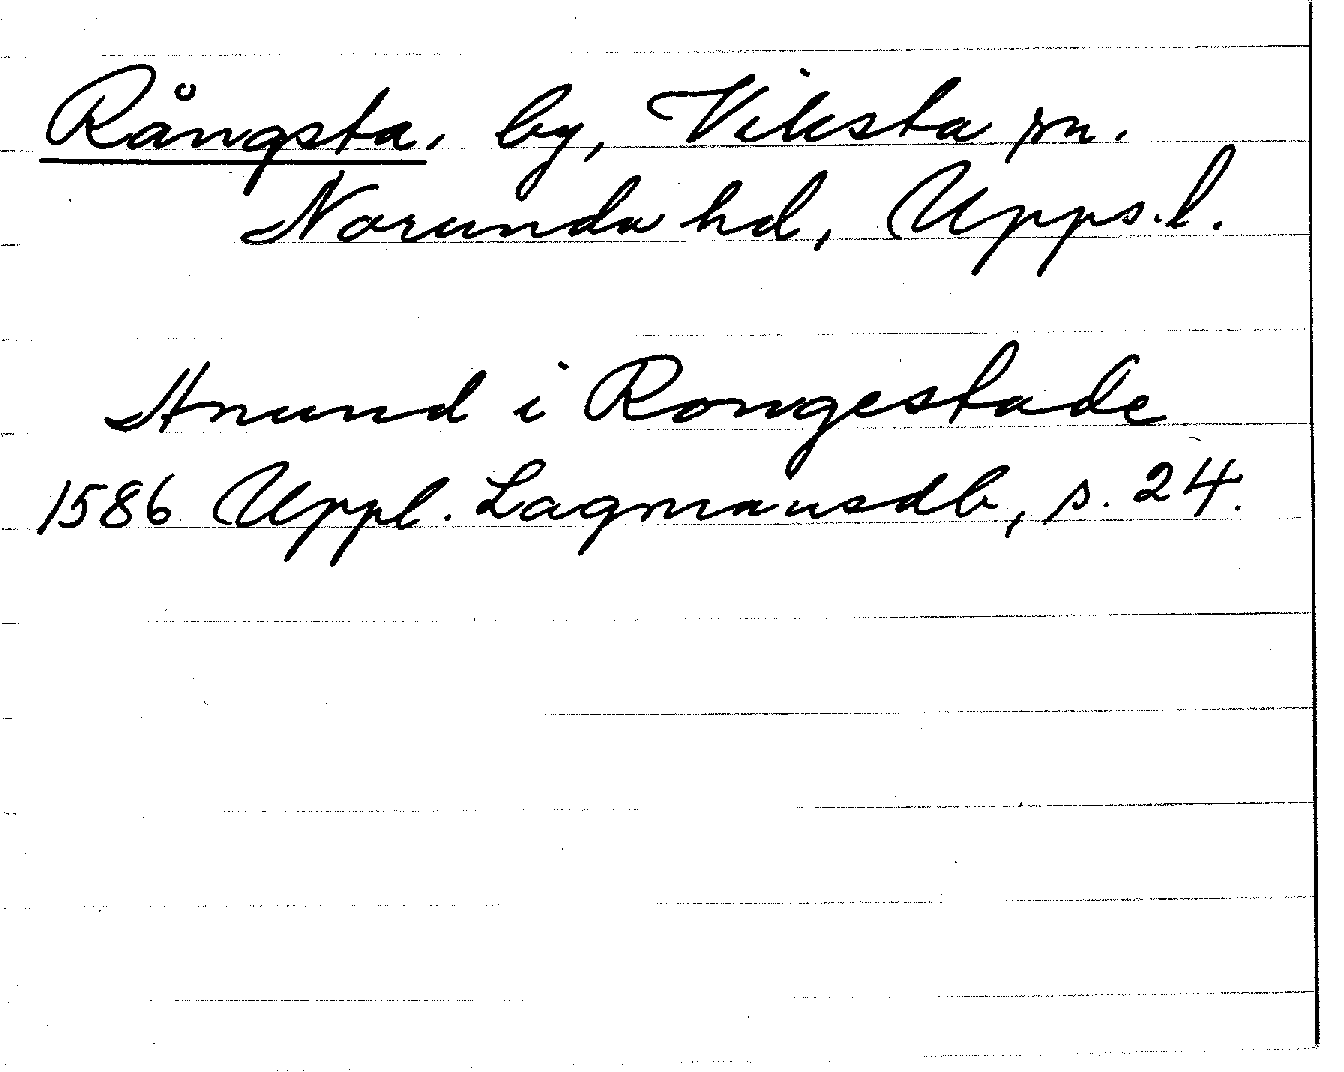 Rångsta, by, Viksta sn.
Norunda hd, Upps.l.
Anund i Rongestade
1586 Uppl. Lagmansdb, s. 24.